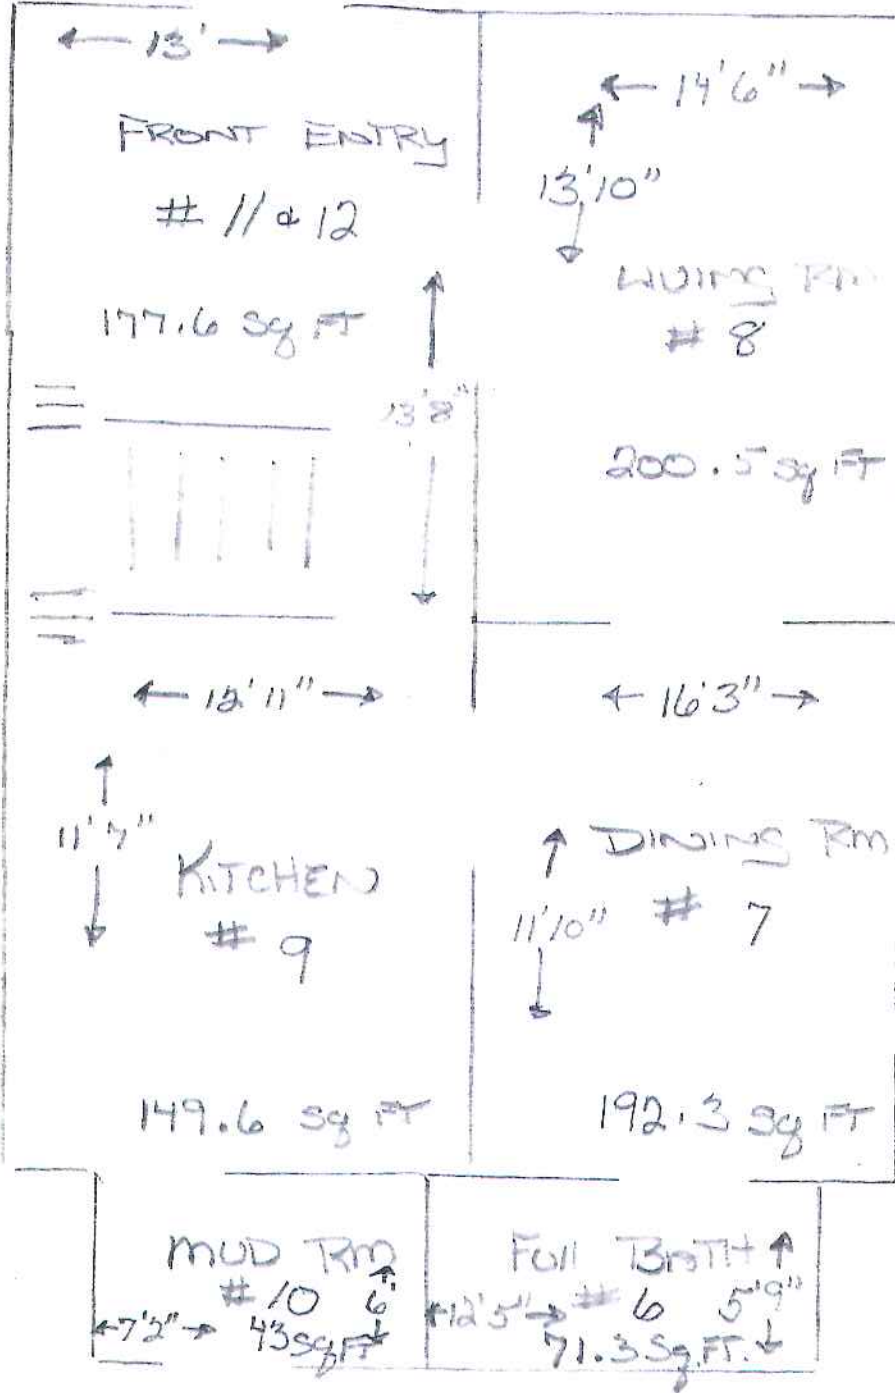 13'
FRONT ENTRY
# 11 & 12
177.6 Sq FT
13'8"
14'6"
13'10"
LIVING RM
# 8
200.5 Sq FT
12'11"
11'7"
KITCHEN
# 9
149.6 Sq FT
16'3"
DINING RM
11'10" # 7
192.3 Sq FT
MUD RM
# 10 6'
7'2" 43 Sq FT
Full BATH
12'5" # 6 5'9"
71.3 Sq.FT.